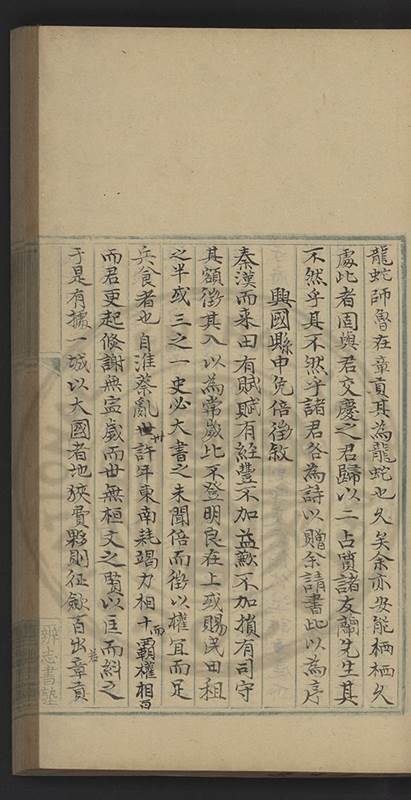 龍蛇師魯在章貢其為龍蛇也久矣余亦安能栖栖久
處此者固與君交慶之君歸以二占質諸友蘭先生其
不然乎其不然乎諸君各為詩以贈余請書此以為序
興國縣申免倍徵敘
秦漢而來田有賦賦有經豐不加益歉不加損有司守
其額徵其入以為常歲比不登明良在上或賜民田租
之半或三之一史必大書之未聞倍而徵以權宜而足
兵食者也自淮蔡亂世廿許年東南耗竭力相十而霸權相百
而君吏起倏謝無寧歲而世無桓文之賢以匡而糾之
于是有據一城以大國者地狹費夥則征歛百出若章貢
辨志書塾